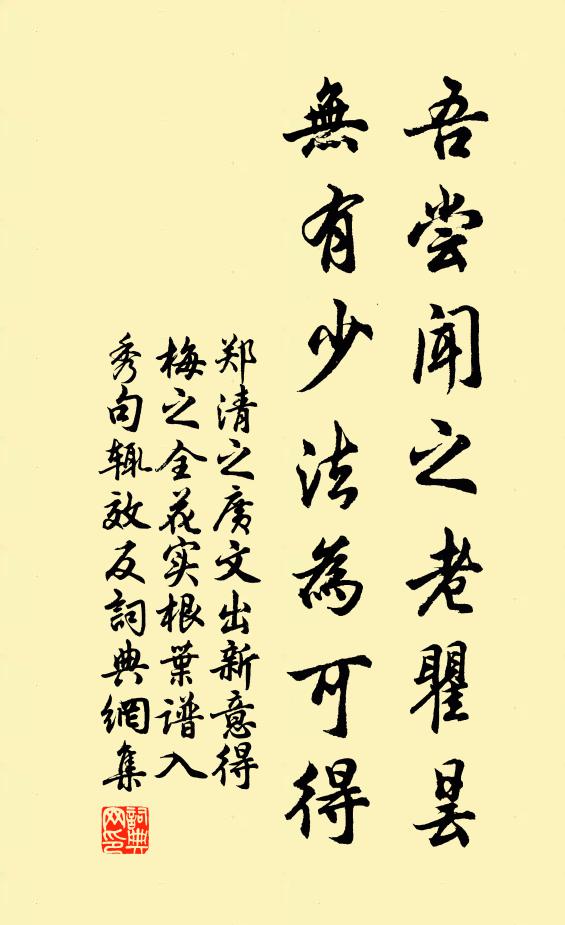 吾尝闻之老瞿昙
無有少法為可得
郑清之廣文出新意得
梅之全花实根葉谱入
秀句辄效反詞典網集
詞典
网印